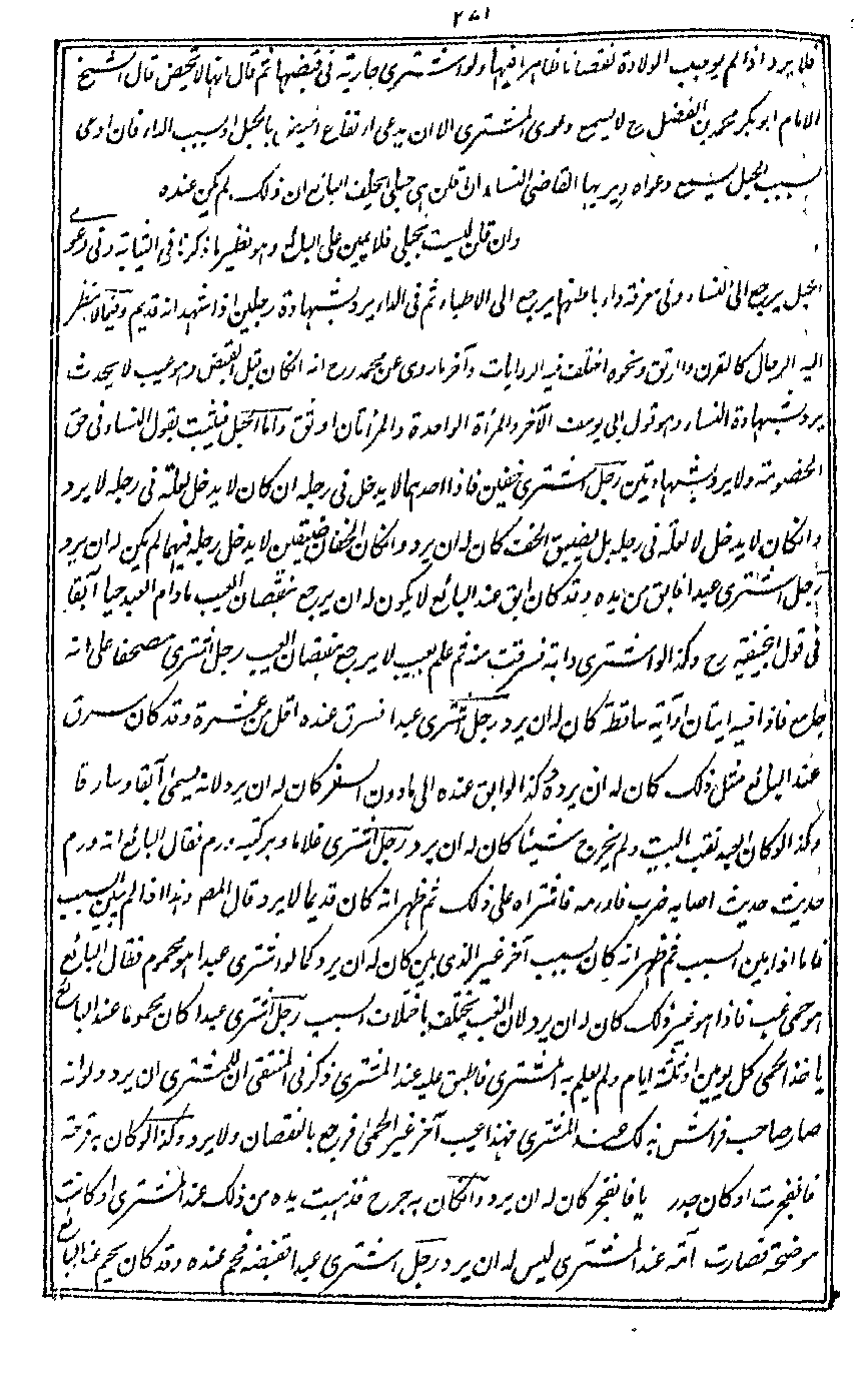 ٢٨١
فلا يرد اذا لم يوجب الولادة نقصانا ظاهرا فيها ولو اشترى جارية فى قبضها ثم قال انها لا تحيض قال الشيخ
الامام ابو بكر محمد بن الفضل رح لا يسمع دعوى المشترى الا ان يدعى ارتفاع الحيض بالحبل او بسبب الداء فان ادعى
بسبب الحبل يسمع دعواه ويريها القاضى النساء ان قلن هى حبلى يحلف البائع ان ذلك لم يكن عنده
وان قلن ليست بحبلى فلا يمين على البائع وهو نظير ما ذكرنا فى الثيابة وفى دعوى
الحبل يرجع الى النساء وفى معرفة داء باطنها يرجع الى الاطباء ثم فى الداء يرد بشهادة رجلين اذا شهدا انه قديم وفيما لا ينظر
اليه الرجال كالقرن والرتق ونحوه اختلف فيه الروايات وآخر ما روى عن محمد رح انه ان كان قبل القبض وهو عيب لا يحدث
يرد بشهادة النساء وهو قول ابى يوسف الآخر والمرأة الواحدة والمرأتان اوثق واما الحبل فيثبت بقول النساء فى حق
الخصومة ولا يرد بشهادتهن رجل اشترى خفين فاذا احدهما لا يدخل فى رجله ان كان لا يدخل لعلة فى رجله لا يرد
وان كان لا يدخل لا لعلة فى رجله بل لضيق الخف كان له ان يرد وان كان الخفان ضيقين لا يدخل رجله فيهما لم يكن له ان يرد
رجل اشترى عبدا فابق من يده وقد كان ابق عند البائع لا يكون له ان يرجع بنقصان العيب ما دام العبد حيا آبقا
فى قول ابى حنيفة رح وكذا لو اشترى دابة فسرقت منه ثم علم بعيب لا يرجع بنقصان العيب رجل اشترى مصحفا على انه
جامع فاذا فيه ايتان او آية ساقطة كان له ان يرد رجل اشترى عبدا فسرق عنده اقل من عشرة وقد كان سرق
عند البائع مثل ذلك كان له ان يرده وكذا لو ابق عنده الى ما دون السفر كان له ان يرد لانه يسمى آبقا وسارقا
وكذا لو كان العبد نقب البيت ولم يخرج شيئا كان له ان يرد رجل اشترى غلاما وبركبتيه ورم فقال البائع انه ورم
حديث حديث اصابه ضرب فاورمه فاشتراه على ذلك ثم ظهر انه كان قديما لا يرد قال المص وهذا اذا لم يبين السبب
فاما اذا بين السبب ثم ظهر انه كان بسبب آخر غير الذى بين كان له ان يرد كما لو اشترى عبدا هو محموم فقال البائع
هو حمى غب فاذا هو غير ذلك كان له ان يرد لان العيب يختلف باختلاف السبب رجل اشترى عبدا كان محموما عند البائع
ياخذ الحمى كل يومين او ثلثة ايام ولم يعلم به المشترى فاطبق عليه عند المشترى ذكر فى المنتقى ان للمشترى ان يرد ولو انه
صار صاحب فراش بذلك عند المشترى فهذا عيب آخر غير الحمى فيرجع بالنقصان ولا يرد وكذا لو كان به قرحة
فانفجرت او كان جدريا فانفجر كان له ان يرد وان كان به جرح فذهبت يده من ذلك عند المشترى او كانت
موضحة فصارت آمة عند المشترى ليس له ان يرد رجل اشترى عبدا فقبضه فحم عنده وقد كان يحم عند البائع